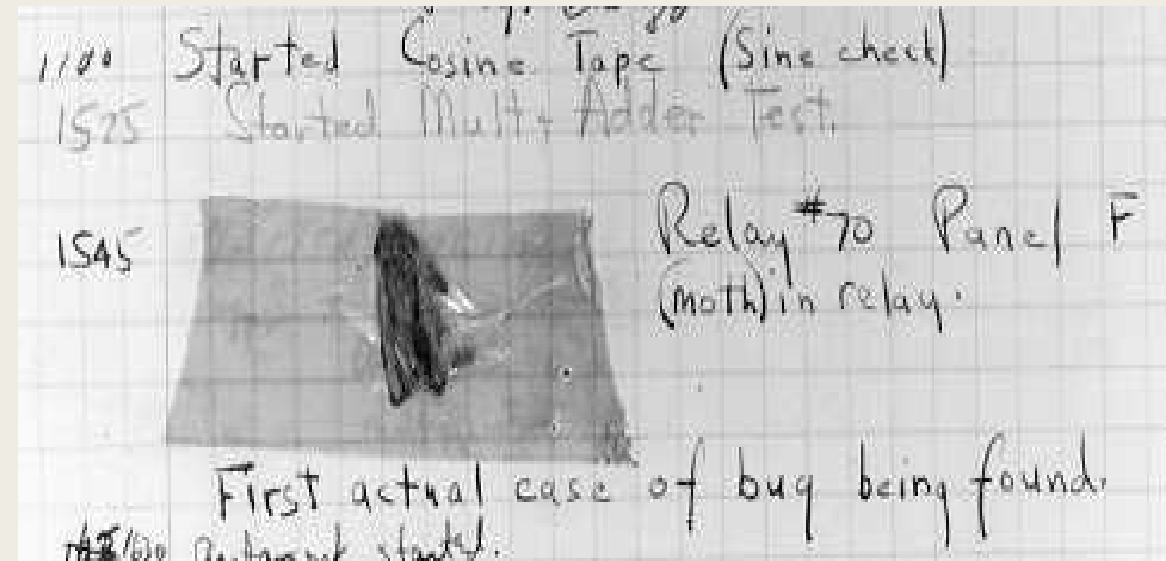 1100 Started Cosine Tape (Sine check)
1525 Started Mult + Adder Test.
1545 Relay #70 Panel F
(moth) in relay.
First actual case of bug being found.
1630 started.